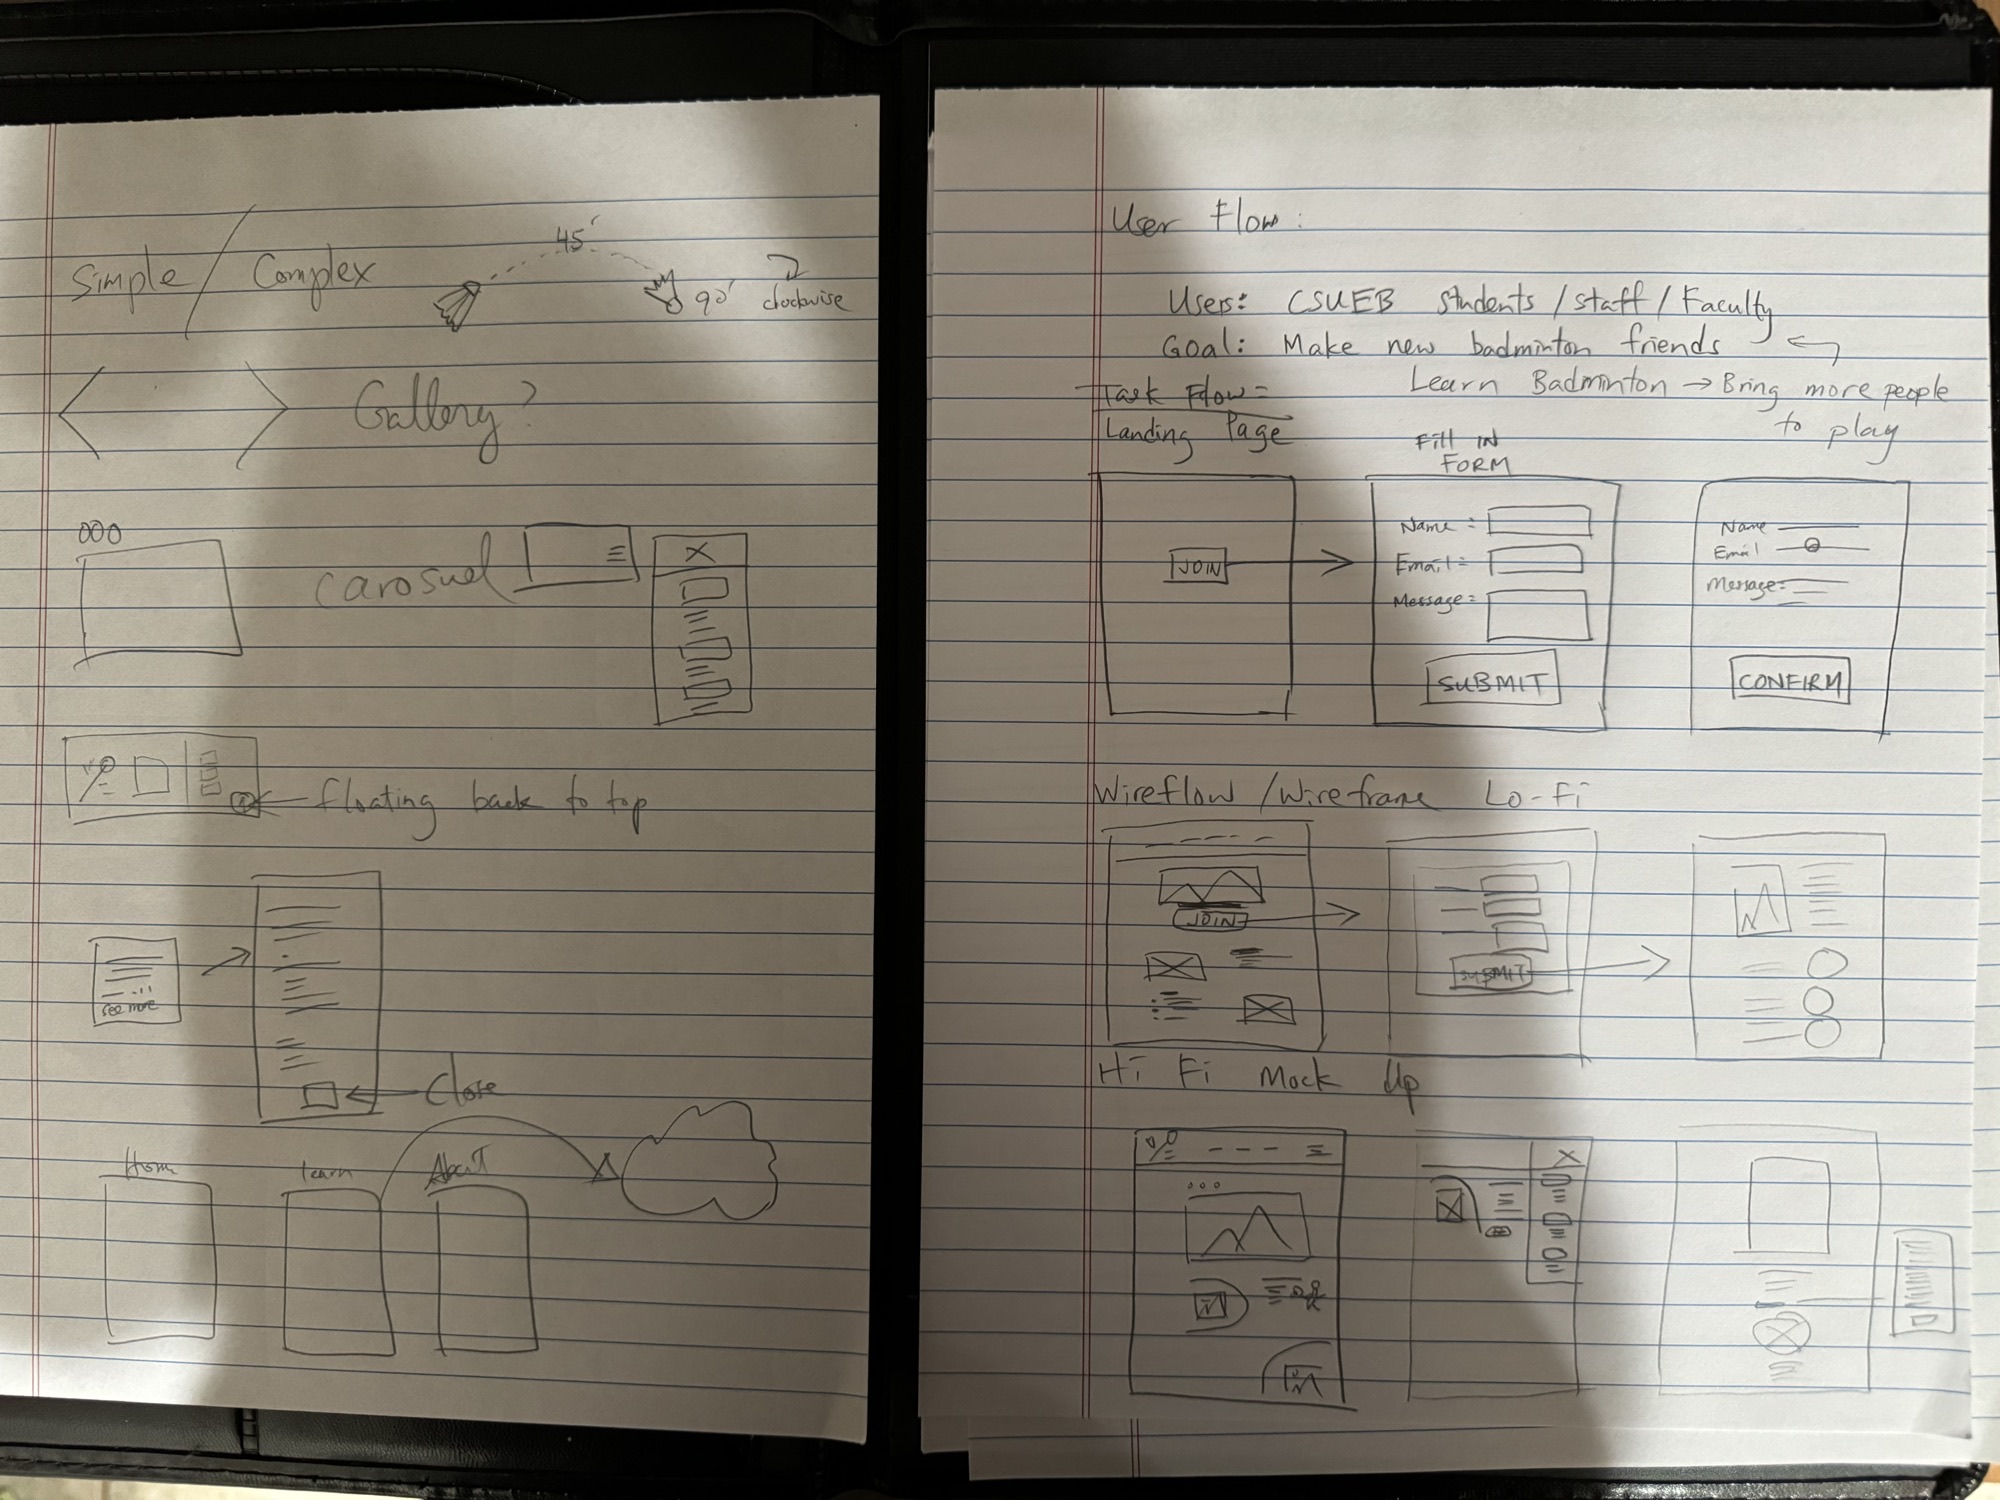 Simple / Complex
45°
90°
clockwise
Gallery?
Carosuel
X
floating back to top
see more
Close
Home
learn
About
User Flow:
Users: CSUEB students / staff / Faculty
Goal: Make new badminton friends
Learn Badminton → Bring more people
to play
Task Flow =
Landing Page
JOIN
Fill IN
FORM
Name =
Email =
Message =
SUBMIT
Name
Email
Message:
CONFIRM
Wireflow / Wireframe Lo-Fi
JOIN
SUBMIT
Hi Fi Mock Up
X